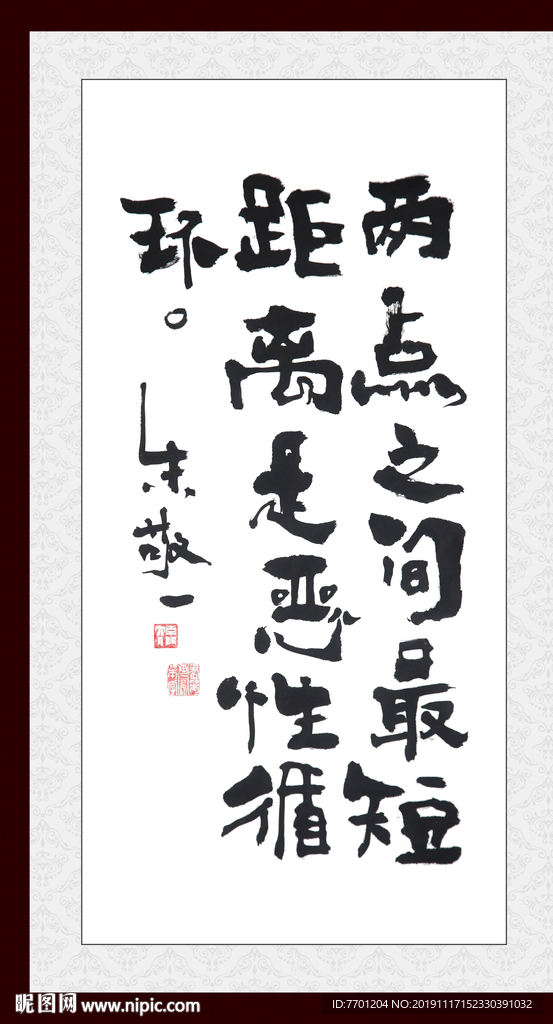 两点之间最短
距离是恶性循
环。
朱敬一
昵图网 www.nipic.com
ID:7701204 NO:20191117152330391032